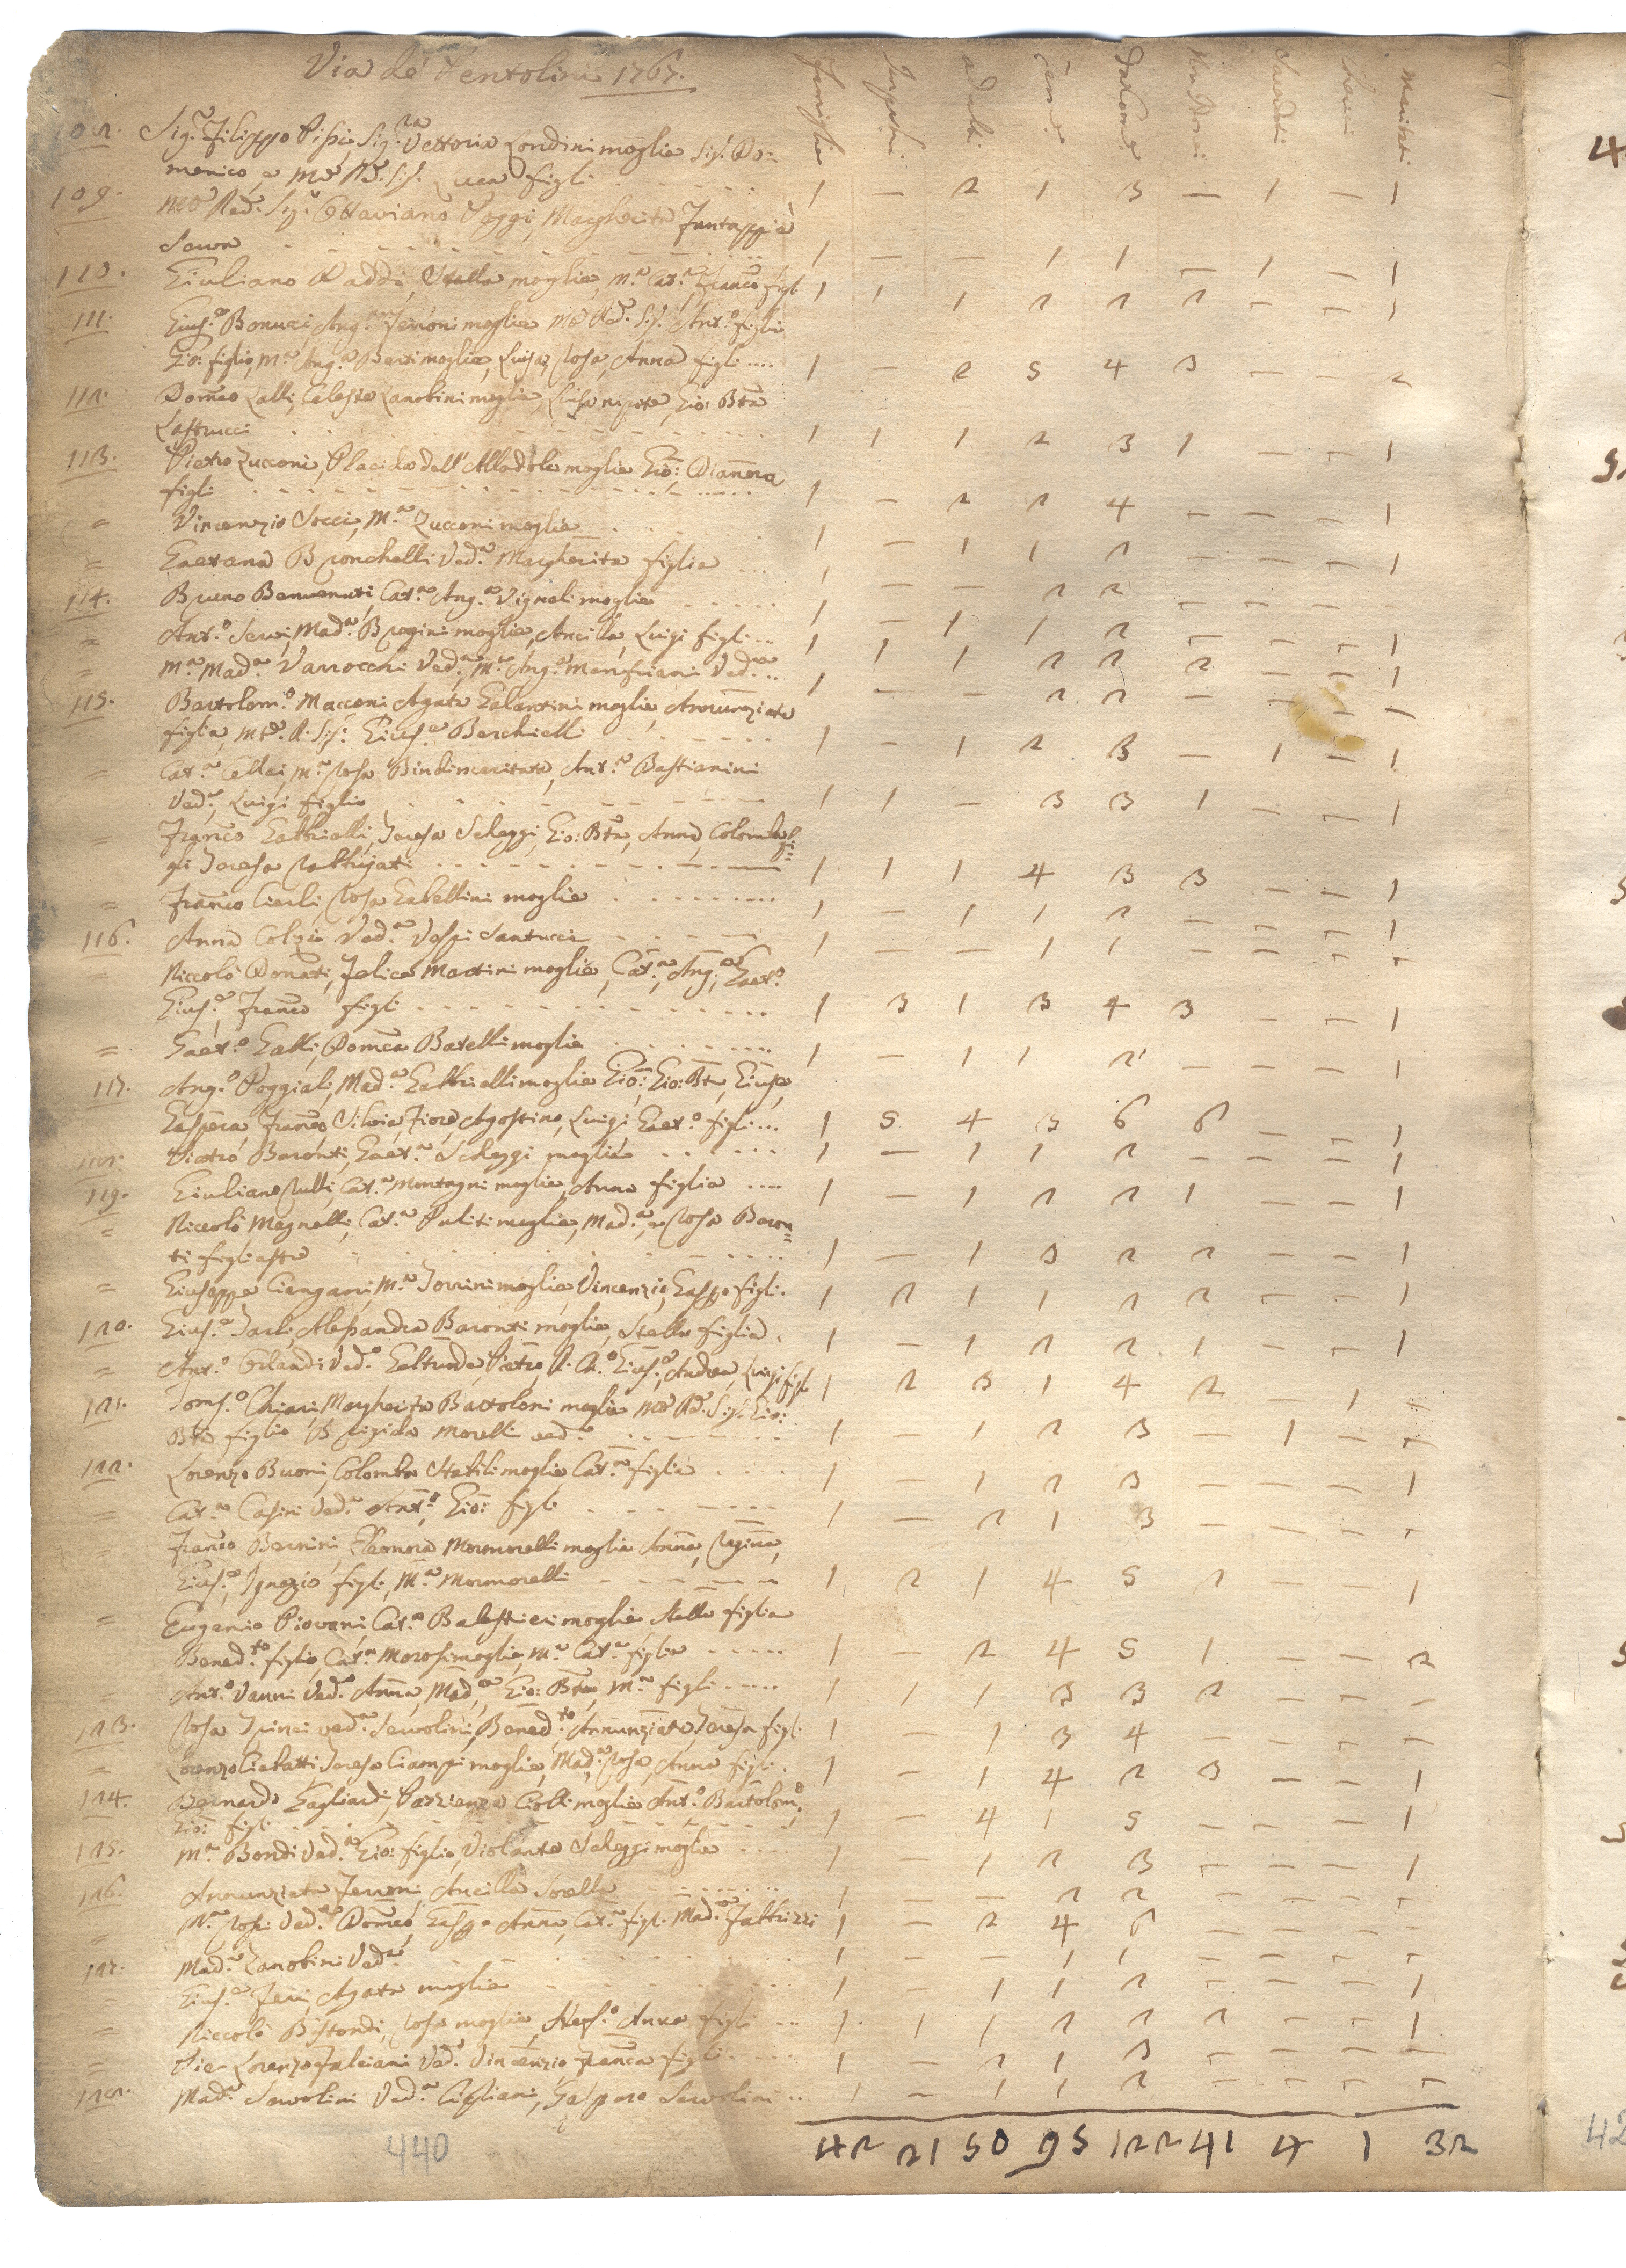 Via de' Pentolini 1767.
Famiglie Impuberi adulti Fem.e Dacom.e Non Dac. Sacerdoti Cherici Mariti
108. Sig.e Filippo Sig.ra Vettoria Londini moglie Sig. Do:
menico, e M.o R.do Sig. Luca figli 1 — 2 1 3 — 1 — 1
109. M.o Red. Sig.e Ottaviano Poggi, Margherita Fantappiè
Serva 1 — — 1 1 — 1 — 1
110. Giuliano Raddi, Stella moglie, M.a Cat.a Franco figli 1 1 1 2 2 2 — — 1
111. Gius.e Bonuci, Ang.a Ferroni moglie M.o Rd. Sig. Ant.o figli
Gio: figlio, M.a Ang.a Berti moglie, Luisa, Rosa, Anna figli 1 — 2 5 4 3 — — 2
112. Domco Lalli, Celeste Zanobini moglie, Luisa nipote, Gio: Btta
Lastrucci 1 1 1 2 3 1 — — 1
113. Pietro Zucconi, Placida dell'Allodola moglie Gio: Dianora
figli 1 — 2 2 4 — — — 1
= Vincenzio Socci, M.a Zucconi moglie 1 — 1 1 2 — — — 1
= Gaetana Bronchelli Ved.a Margherita figlia 1 — — 2 2 — — — —
114. Bruno Benvenuti, Cat.a Ang.a Vignali moglie 1 — 1 1 2 — — — 1
= Ant.o Servi, Mad.a Bragini moglie, Ancilla, Luigi figli 1 1 1 2 2 2 — — 1
= M.a Mad.a Varrocchi Ved.a, M.a Ang.a Manfriani Ved.a 1 — — 2 2 — — — —
115. Bartolom.o Macconi Agata Galantini moglie, Annunziata
figlia, M.o R. Sig: Gius.e Berchielli 1 — 1 2 3 — 1 — 1
= Cat.a Cellai, M.a Rosa Bindi maritata, Ant.a Bastianini
Ved.a, Luigi figlio 1 1 — 3 3 1 — — 1
= Franco Gabbrielli, Teresa Scheggi, Gio: Btta, Anna, Colomba fi=
gli Teresa Rabbujati 1 1 1 4 3 3 — — 1
= Franco Cierli, Rosa Gabellini moglie 1 — 1 1 2 — — — 1
116. Anna Colzi Ved.a Vespi Santucci 1 — — 1 1 — — — —
= Niccolò Donati, Felice Martini moglie, Cat.a, Ang.a, Gaet.o
Gius.e, Franco figli 1 3 1 3 4 3 — — 1
= Gaet.o Galli, Domca Batelli moglie 1 — 1 1 2 — — — 1
117. Ang.o Poggiali, Mad.a Gabbrielli moglie Gio:, Gio: Btta, Giuse,
Gaspera, Franco, Silvia, Fiore, Agostino, Luigi, Gaet.o figli 1 5 4 3 6 6 — — 1
118. Pietro Baronti, Gaet.a Scheggi moglie 1 — 1 1 2 — — — 1
119. Giuliano Rulli Cat.a Montagni moglie, Anna figlia 1 — 1 2 2 1 — — 1
= Niccolò Magnelli, Cat.a Puliti moglie, Mad.a, e Rosa Baron=
ti figliastre 1 — 1 3 2 2 — — 1
= Giuseppe Ciengani, M.a Torrini moglie, Vincenzio, Gaspo figli. 1 2 1 1 2 2 — — 1
120. Gius.e Tarli, Alessandra Baronti moglie, Stella figlia. 1 — 1 2 2 1 — — 1
= Ant.o Orlandi Ved.o Geltruda, Pietro, Gius.e, Andrea, Luigi figli 1 2 3 1 4 2 — 1
121. Toms.o Chiari, Margherita Bartoloni moglie M.o Rd. Sig. Gio:
Bta figlio Brigida Morelli ved.a 1 — 1 2 3 — 1 — —
122. Lorenzo Buoni, Colomba Stabili moglie Cat.a figlia 1 — 1 2 3 — — — 1
= Cat.a Casini Ved.a Ant.o, Gio: figli 1 — 2 1 3 — — — —
Franco Bernini, Eleonora Mormorelli moglie Anna, Regina,
Gius.e, Ignazio figli, M.a Mormorelli 1 2 1 4 5 2 — — 1
= Eugenio Piovani, Cat.a Balestrieri moglie Stella figlia
Bened.to figlio, Cat.a Morosi moglie, M.a Cat.a figlie 1 — 2 4 5 1 — — 2
= Ant.o Vanni Ved.o Anna, Mad.a, Gio: Btta, M.a figli 1 1 1 3 3 2 — — —
123. Rosa Spinei ved.a Servolini, Bened.to Annunziata, Teresa figli 1 — 1 3 4 — — — —
= Lorenzo Ciabatti Teresa Ciampi moglie, Mad.a Rosa, Anna figli. 1 — 1 4 2 3 — — 1
124. Bernardo Gagliardi, Pazzienza Ciolli moglie Ant.o Bartolom.o,
Gio: figli 1 — 4 1 5 — — — 1
125. M.a Bondi Ved.a Gio: figlio, Violante Scheggi moglie 1 — 1 2 3 — — — 1
126. Annunziata Ferroni, Ancilla Sorella 1 — — 2 2 — — — —
= M.a Rosi Ved.a Domco, Gaspo Anna, Cat.a figli. Mad.a Fabbrizzi 1 — 2 4 6 — — — —
127. Mad.a Zanobini Ved.a 1 — — 1 1 — — — —
= Gius.e Feri, Agata moglie 1 — 1 1 2 — — — 1
= Niccolò Bistondi, Rosa moglie, Stef.o Anna figli 1 1 1 2 2 2 — — 1
= Pier Lorenzo Falciani Ved.o Vincenzio, Franca figli 1 — 2 1 3 — — — —
128. Mad.a Servolini Ved.a Cipriani, Gasparo Servolini 1 — 1 1 2 — — — —
42 21 50 95 122 41 4 1 32
440
42